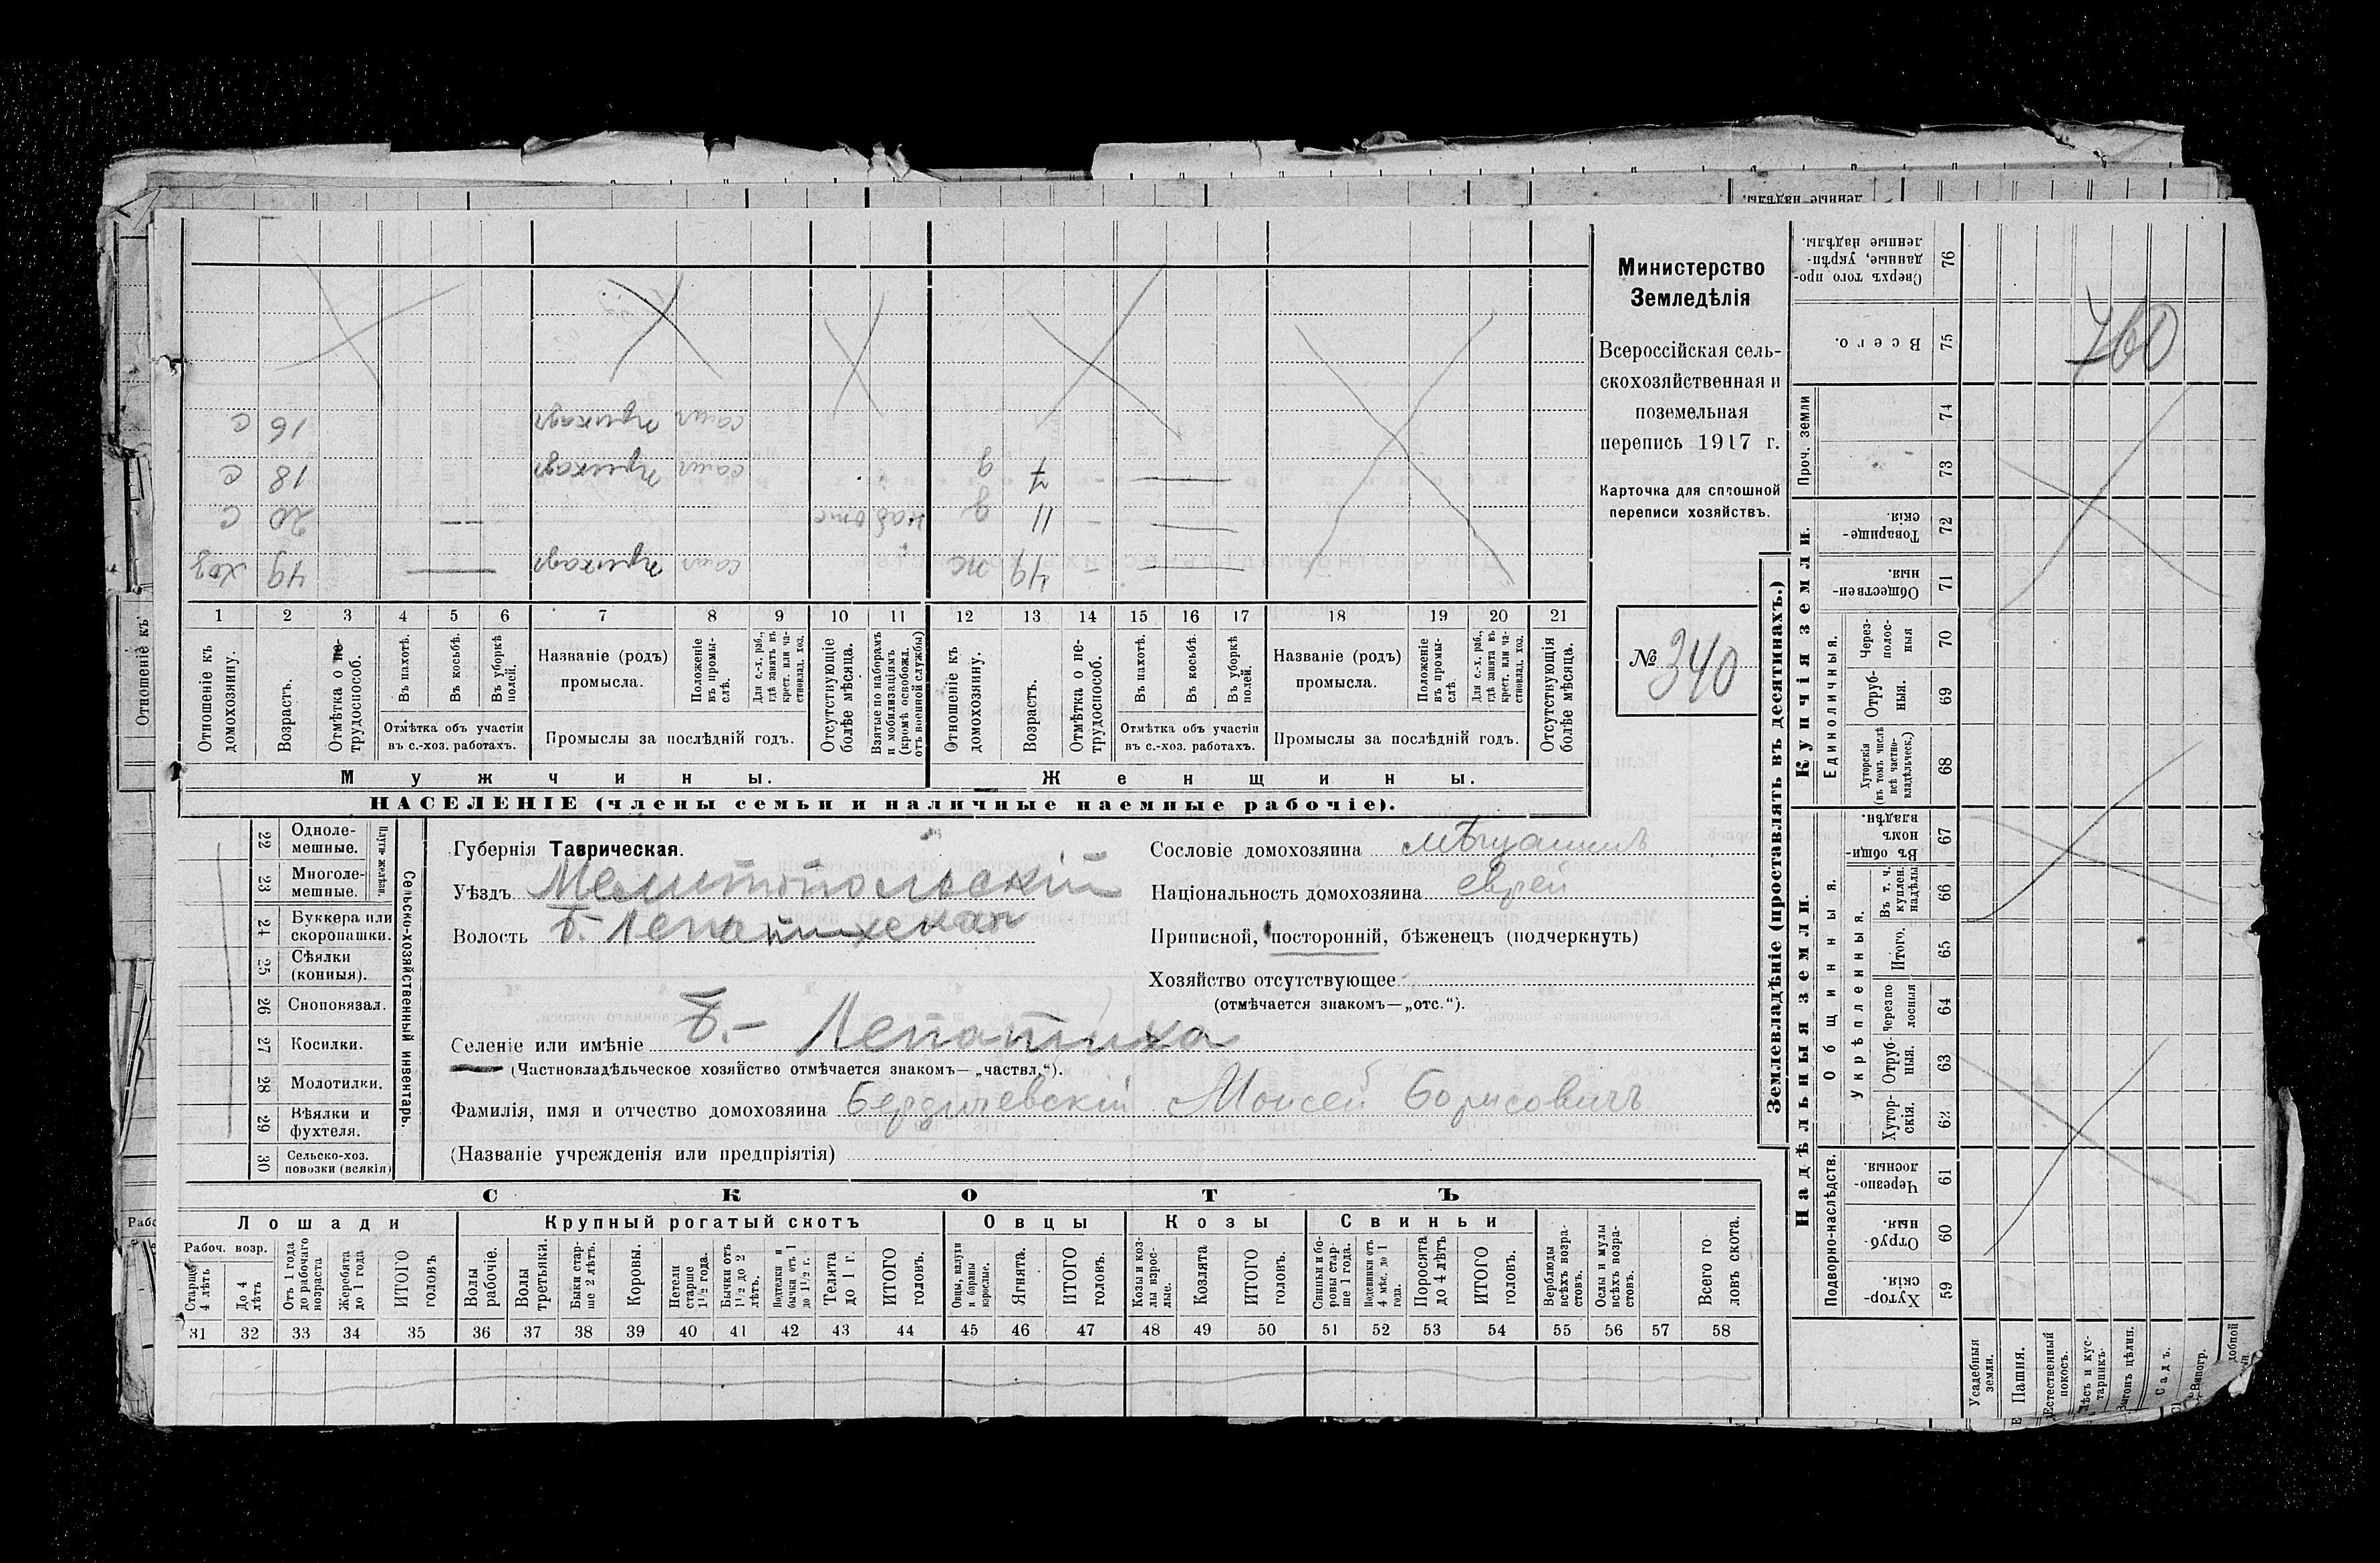 Министерство
Земледѣлія
Всероссійская сель-
скохозяйственная и
поземельная
перепись 1917 г.
Карточка для сплошной
переписи хозяйствъ.
№ 340
760
с 16 приказч
с 18 приказч
с 20
хоз 49 приказч
д 7
д 11
ж 49
1 2 3 4 5 6 7 8 9 10 11 12 13 14 15 16 17 18 19 20 21
Отношеніе къ домохозяину.
Возрастъ.
Отмѣтка о не-трудоспособ.
Въ пахотѣ.
Въ косьбѣ.
Въ уборкѣ полей.
Отмѣтка объ участіи
въ с.-хоз. работахъ.
Названіе (родъ)
промысла.
Положеніе въ промы-слѣ.
Для с.-х. раб., гдѣ занятъ въ крест. или ча-стновлад. хоз.
Промыслы за послѣдній годъ.
Отсутствующіе болѣе мѣсяца.
Взятые по наборамъ и мобилизаціямъ (кромѣ освобожд. отъ военной службы)
Отношеніе къ домохозяину.
Возрастъ.
Отмѣтка о не-трудоспособ.
Въ пахотѣ.
Въ косьбѣ.
Въ уборкѣ полей.
Отмѣтка объ участіи
въ с.-хоз. работахъ.
Названіе (родъ)
промысла.
Положеніе въ промы-слѣ.
Для с.-х. раб., гдѣ занята въ крест. или ча-стновлад. хоз.
Промыслы за послѣдній годъ.
Отсутствующія болѣе мѣсяца.
Мужчины.
Женщины.
НАСЕЛЕНІЕ (члены семьи и наличные наемные рабочіе).
Сельско-хозяйственный инвентарь.
22 Одноле-мешные.
23 Многоле-мешные.
24 Буккера или скоропашки.
25 Сѣялки (конныя).
26 Сноповязал.
27 Косилки.
28 Молотилки.
29 Вѣялки и фухтеля.
30 Сельско-хоз. повозки (всякія)
Губернія Таврическая.
Уѣздъ Мелитопольскій
Волость Б. Лепатихская
Сословіе домохозяина мѣщанинъ
Національность домохозяина еврей
Приписной, посторонній, бѣженецъ (подчеркнуть)
Хозяйство отсутствующее
(отмѣчается знакомъ—„отс.“).
Селеніе или имѣніе Б.- Лепатиха
(Частновладѣльческое хозяйство отмѣчается знакомъ—„частвл.“).
Фамилія, имя и отчество домохозяина Бердичевскій Моисей Борисовичъ
(Названіе учрежденія или предпріятія)
СКОТЪ
Лошади
Крупный рогатый скотъ
Овцы
Козы
Свиньи
Рабоч. возр.
Старше 4 лѣтъ
До 4 лѣтъ
Отъ 1 года до рабочаго возраста
Жеребята до 1 года
ИТОГО головъ
Волы рабочіе.
Волы третьяки.
Быки стар-ше 2 лѣтъ.
Коровы.
Нетели старше 1½ года.
Бычки отъ 1½ до 2 лѣтъ.
Подтелки и бычки отъ 1 до 1½ г.
Телята до 1 г.
ИТОГО головъ.
Овцы, валухи и бараны взрослые.
Ягнята.
ИТОГО головъ.
Козы и коз-лы взрос-лые.
Козлята
ИТОГО головъ.
Свиньи и бо-ровы стар-ше 1 года.
Подсвинки отъ 4 мѣс. до 1 года.
Поросята до 4 лѣтъ
ИТОГО головъ.
Верблюды всѣхъ возра-стовъ.
Ослы и мулы всѣхъ возра-стовъ.
Всего го-ловъ скота.
31 32 33 34 35 36 37 38 39 40 41 42 43 44 45 46 47 48 49 50 51 52 53 54 55 56 57 58
Землевладѣніе (проставлять въ десятинахъ.)
Надѣльныя земли.
Купчія земли.
Проч. земли
Подворно-наслѣдств.
Общинныя.
Укрѣпленныя.
Единоличныя.
Сверхъ того про-данные, укрѣп-ленные надѣлы. 76
Всего. 75
74
73
Товарище-скія 72
Обществен-ныя. 71
Через-полос-ныя 70
Отруб-ныя. 69
Хуторскія (въ томъ числѣ всѣ частно-владѣльческ.) 68
Въ общи-номъ владѣн. 67
Въ т. ч. куплен. надѣлы 66
Итого. 65
Черезпо-лосныя 64
Отруб-ныя. 63
Хутор-скія. 62
Черезпо-лосныя. 61
Отруб-ныя. 60
Хутор-скія. 59
Усадебныя земли.
Пашня.
Естественный покосъ.
Лѣсъ и кус-тарникъ.
Выгонъ цѣлин.
Садъ.
Виногр.
Отношеніе къ